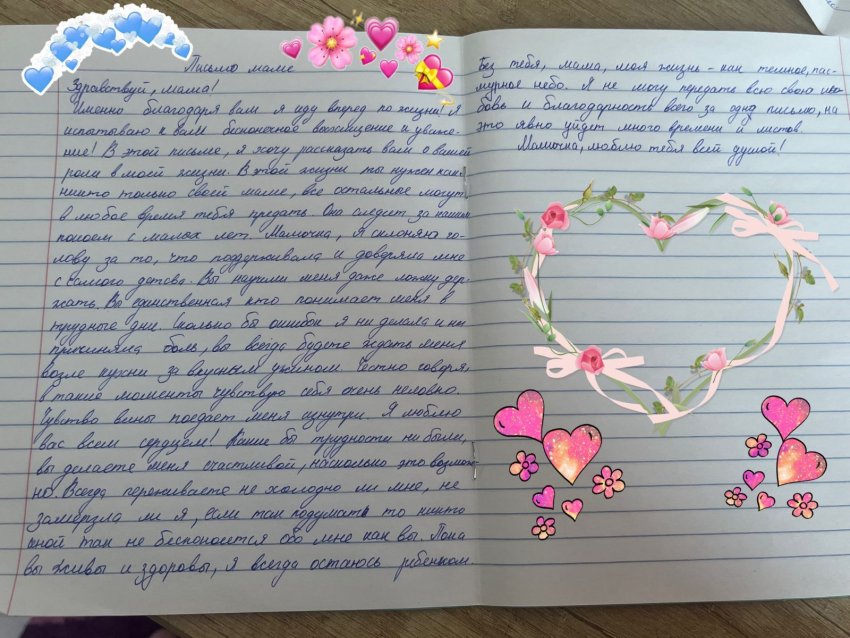 Письмо маме
Здравствуй, мама!
Именно благодаря вам я иду вперед по жизни! Я
испытываю к вам бесконечное восхищение и уваже-
ние! В этой письме, я хочу рассказать вам о вашей
роли в моей жизни. В этой жизни ты нужен как
никто только своей маме, все остальные могут
в любое время тебя предать. Она следит за нашим
покоем с малых лет. Мамочка, я склоняю го-
лову за то, что поддерживала и доверяла мне
с самого детсва. Вы научили меня даже ложку дер-
жать. Вы единственная кто понимает меня в
трудные дни. Сколько бы ошибок я ни делала и ни
причиняла боль, вы всегда будете ждать меня
возле кухни за вкусным ужином. Честно говоря
в такие моменты чувствую себя очень неловко.
Чувство вины поедает меня изнутри. Я люблю
вас всем сердцем! Какие бы трудности ни были,
вы делаете меня счастливой, насколько это возмож-
но. Всегда переживаете не холодно ли мне, не
замерзла ли я, если так подумать то никто
иной так не беспокоится обо мне как вы. Пока
вы живы и здоровы, я всегда остаюсь ребенком.
Без тебя, мама, моя жизнь - как темное, пас-
мурное небо. Я не могу передать всю свою лю-
бовь и благодарность всего за одну письмо, на
это явно уйдет много времени и листов.
Мамочка, люблю тебя всей душой!